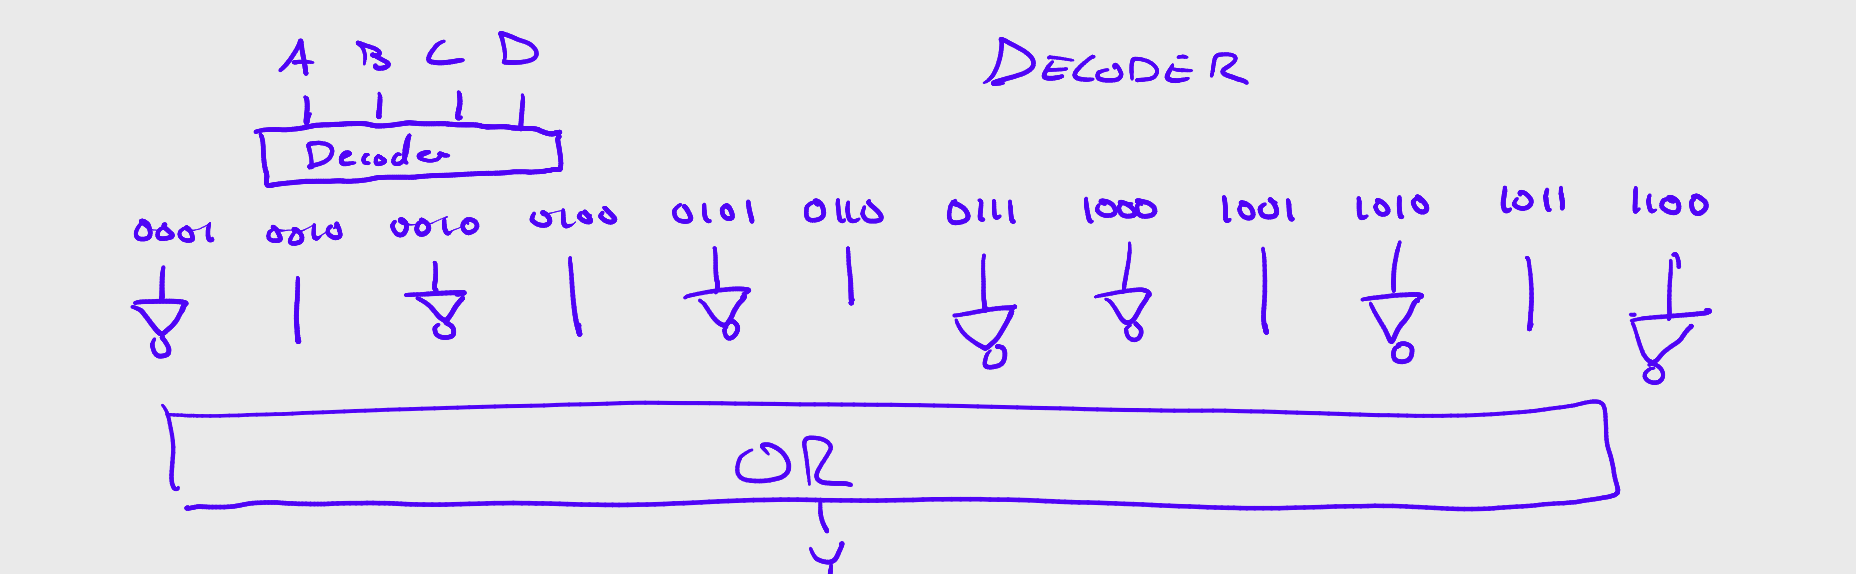 A B C D
DECODER
Decoder
0001 0010 0010 0100 0101 0110 0111 1000 1001 1010 1011 1100
OR
Y